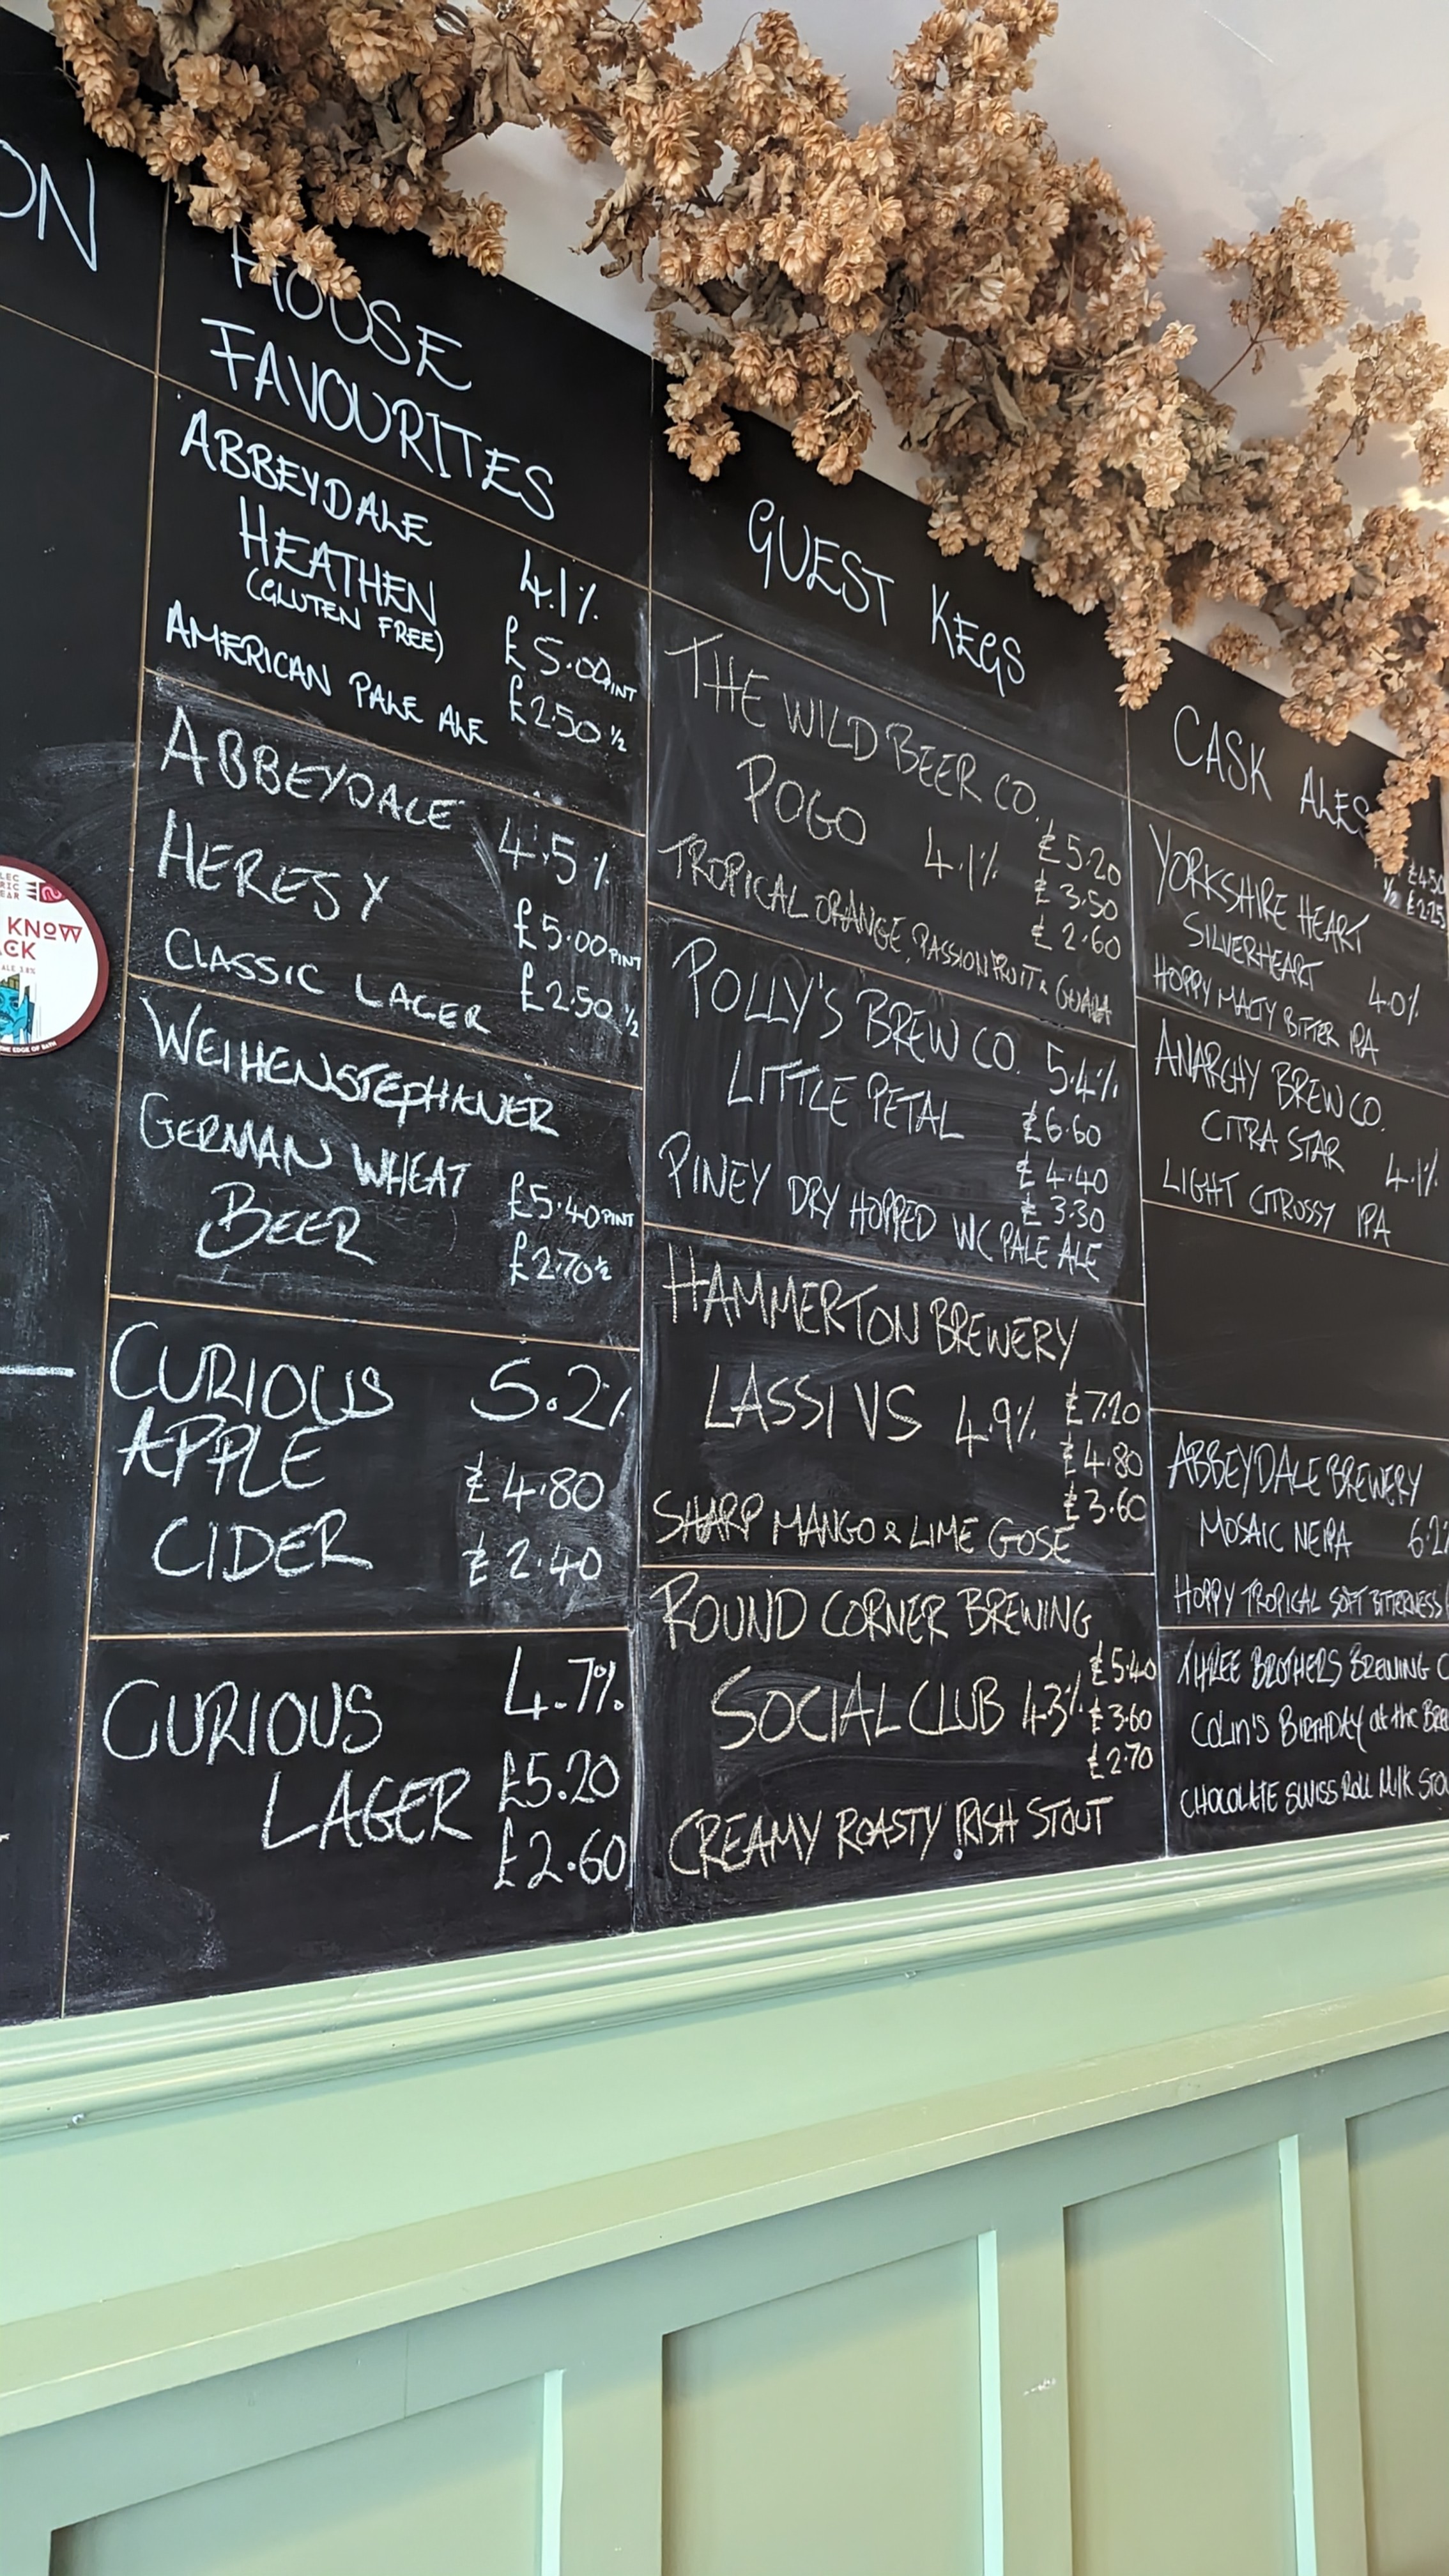 ON
HOUSE
FAVOURITES
ABBEYDALE
HEATHEN 4.1%
(GLUTEN FREE) £5.00 PINT
AMERICAN PALE ALE £2.50 ½
ABBEYDALE 4.5%
HERESY £5.00 PINT
CLASSIC LAGER £2.50 ½
WEIHENSTEPHANER
GERMAN WHEAT £5.40 PINT
BEER £2.70 ½
CURIOUS 5.2%
APPLE £4.80
CIDER £2.40
CURIOUS 4.7%
LAGER £5.20
£2.60
GUEST KEGS
THE WILD BEER CO.
POGO 4.1% £5.20
£3.50
£2.60
TROPICAL ORANGE, PASSIONFRUIT & GUAVA
POLLY'S BREW CO. 5.4%
LITTLE PETAL £6.60
£4.40
£3.30
PINEY DRY HOPPED WC PALE ALE
HAMMERTON BREWERY
LASSI VS 4.9% £7.20
£4.80
£3.60
SHARP MANGO & LIME GOSE
ROUND CORNER BREWING
SOCIAL CLUB 4.3% £5.40
£3.60
£2.70
CREAMY ROASTY IRISH STOUT
CASK ALES
£4.50
½ £2.25
YORKSHIRE HEART
SILVERHEART 4.0%
HOPPY MALTY BITTER IPA
ANARCHY BREW CO.
CITRA STAR 4.1%
LIGHT CITRUSSY IPA
ABBEYDALE BREWERY
MOSAIC NEIPA 6.2%
HOPPY TROPICAL SOFT BITTERNESS
THREE BROTHERS BREWING C
COLIN'S BIRTHDAY at the BRE
CHOCOLATE SWISS ROLL MILK STOU
KNOW
ACK